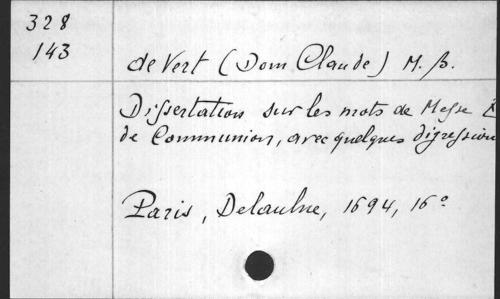 328
143
de Vert (Dom Claude) M. B.
Dissertation sur les mots de Messe &
de Communion, avec quelques digressions
Paris, Delaulne, 1694, 16°